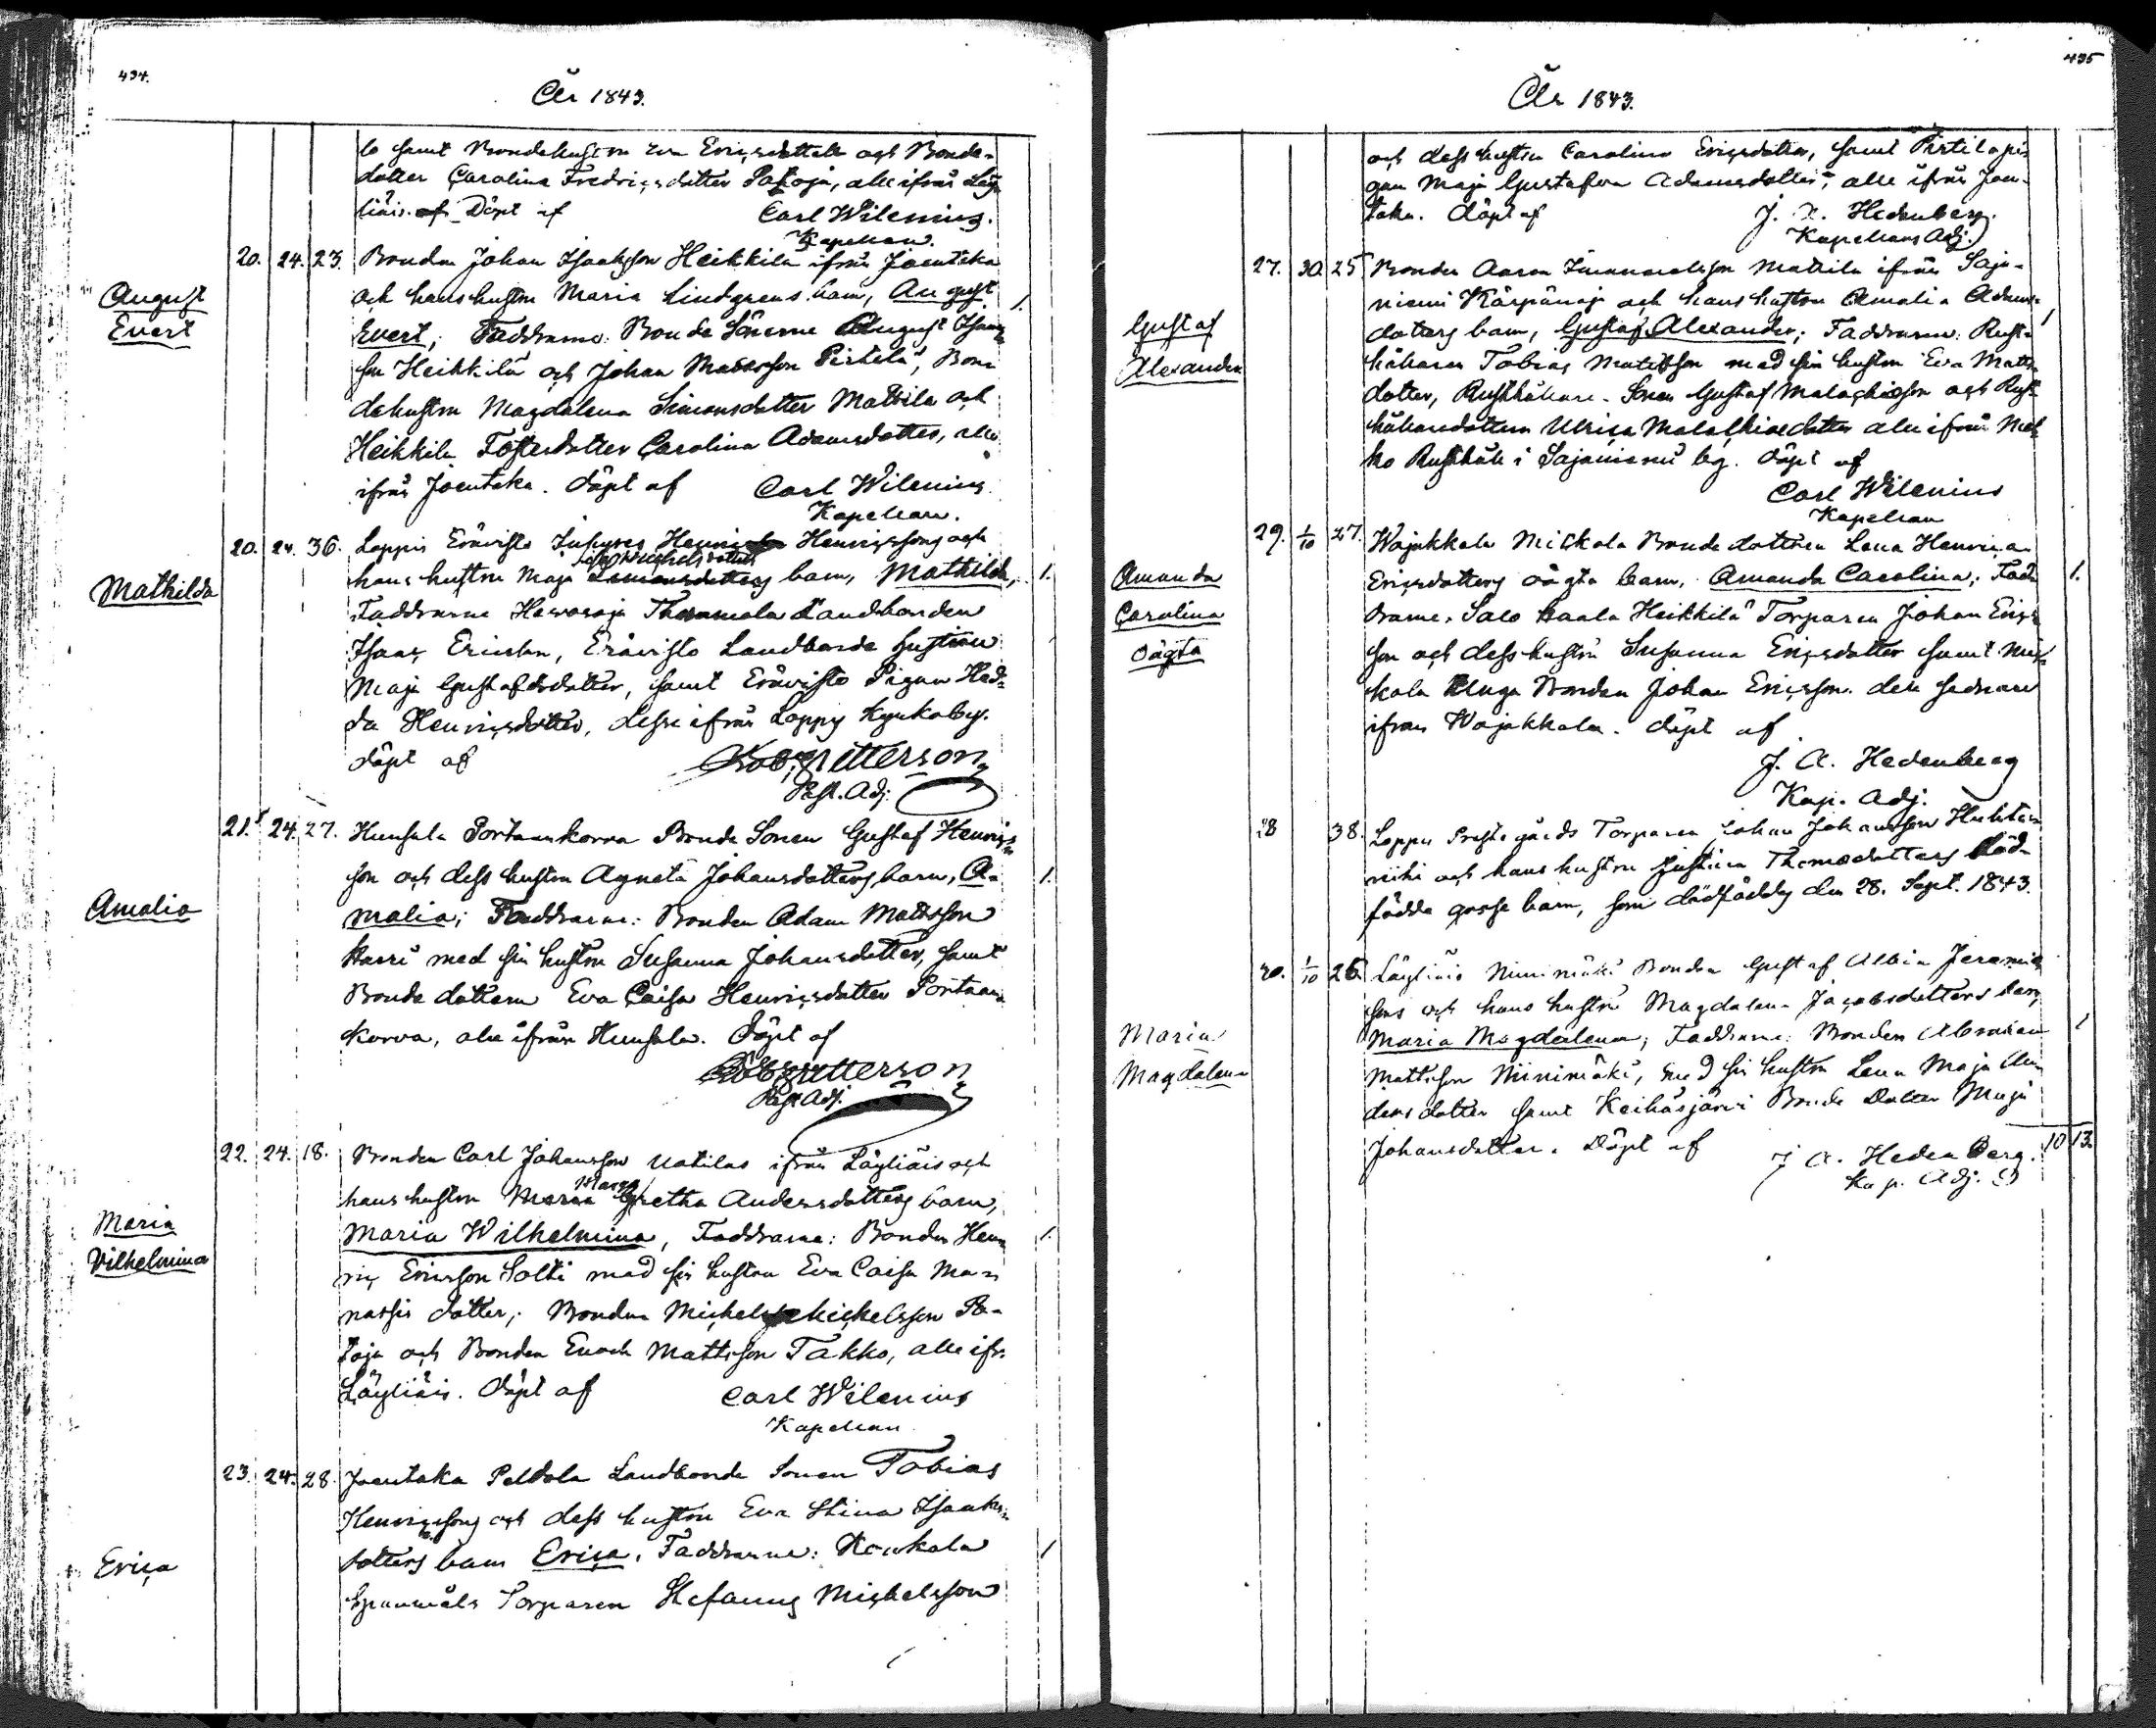 434.
År 1843.
lo samt Bondehustrun Eva Ericsdotter och Bonde-
dotter Carolina Fredricsdotter Patoja, alle ifrån Läy
liäis. Döpt af Carl Wilenius.
Kapellan.
20. 24. 23. Bonden Johan Isaksson Heikkilä ifrån Joentaka
August
och hans hustru Maria Lindgrens barn, August 1.
Evert
Evert; Faddrarne: Bonde Sönerne August Isaacs
son Heikkilä och Johan Matsson Pirtilä, Bon-
dehustrun Magdalena Simonsdotter Mattila och
Heikkilä Fosterdotter Carolina Adamsdotter, alle
ifrån Joentaka. Döpt af Carl Wilenius
Kapellan.
20. 24. 36. Loppis Erävisto Henricssons och
hans hustru Maja Michelsdotters barn, Mathilda, 1.
Mathilda
Faddrarne Hawosoja Landbonden
Isaac Ericsson, Erävisto Landbonde hustrun
Maja Gustafsdotter, samt Erävisto Pigan Hed-
da Henricsdotter, desse ifrån Loppy Kyrkoby.
döpt af Rob. Pettersson
Past. Adj.
21. 24. 27. Hunsala Portaankorva Bonde Sonen Gustaf Henrics
son och dess hustru Agneta Johansdotters barn, A- 1.
Amalia
malia; Faddrarne: Bonden Adam Mattsson
Harri med sin hustru Susanna Johansdotter, samt
Bonde dottern Eva Caisa Henricsdotter Portaan
korva, alle ifrån Hunsala. Döpt af
Rob. Pettersson
Past. Adj.
22. 24. 18. Bonden Carl Johansson Uotilas ifrån Läyliäis och
Marg
hans hustru Maria Gretha Andersdotters barn,
Maria
Maria Wilhelmina, Faddrarne: Bonden Hen- 1.
Vilhelmina
ric Ericsson Solti med sin hustru Eva Caisa Ma-
nassis dotter; Bonden Michel Michelsson Pa-
toja och Bonden Enoch Mattsson Takko, alle ifr.
Läyliäis. Döpt af Carl Wilenius
Kapellan
23. 24. 28. Joentaka Peldola Landbonde Sonen Tobias
Henricssons och dess hustru Eva Stina Isaaks-
Erica
dotters barn Erica. Faddrarne: Kaukola 1
Torparen Stefanus Michelsson
435
År 1843.
och dess hustru Carolina Ericsdotter, samt Pirtilä pi-
gan Maja Gustafva Adamsdotter, alle ifrån Joen-
taka. döpt af J. A. Hedenberg.
Kapellans Adj.
27. 30. 25 Bonden Aaron Immanuelsson Mattila ifrån Saja-
niemi Kärpänoja och hans hustru Amalia Adams-
Gustaf
dotters barn, Gustaf Alexander; Faddrarne: Rust- 1
Alexander
hållaren Tobias Matsson med sin hustru Eva Matts
dotter, Rusthållare-Sonen Gustaf Malachiasson och Rust-
hållaredottern Ulrica Malachiaedotter alle ifrån
ko Rusthåll i Sajaniemi by. döpt af
Carl Wilenius
Kapellan
29. 1/10 27. Wojakkala Mickola Bonde dottren Lena Henrica
Amanda
Ericsdotters oägta barn, Amanda Carolina; Fad- 1.
Carolina
drarne. Salo Heikkilä Torparen Johan Erics-
oägta
son och dess hustru Susanna Ericsdotter samt Mic-
kola Unga Bonden Johan Ericsson. den sednare
ifrån Wojakkala. döpt af
J. A. Hedenberg
Kap. Adj.
28 38. Loppis Prestegårds Torparen Johan Johansson Huhtan
niihi och hans hustru Justina Thomædotters död-
födda gosse barn, som dödföddes den 28. Sept. 1843.
30. 1/10 26. Läyliäis Ninimäki Bonden Gustaf Albin Jeremias
sons och hans hustru Magdalena Jacobsdotters barn
Maria
Maria Magdalena; Faddrarne: Bonden Abraham 1
Magdalena
Mattsson Ninimäki, med sin hustru Lena Maja An-
dersdotter samt Keihäsjärvi Bonde Dotter Maja
Johansdotter. Döpt af J. A. Hedenberg. 10 13.
Kap. Adj.